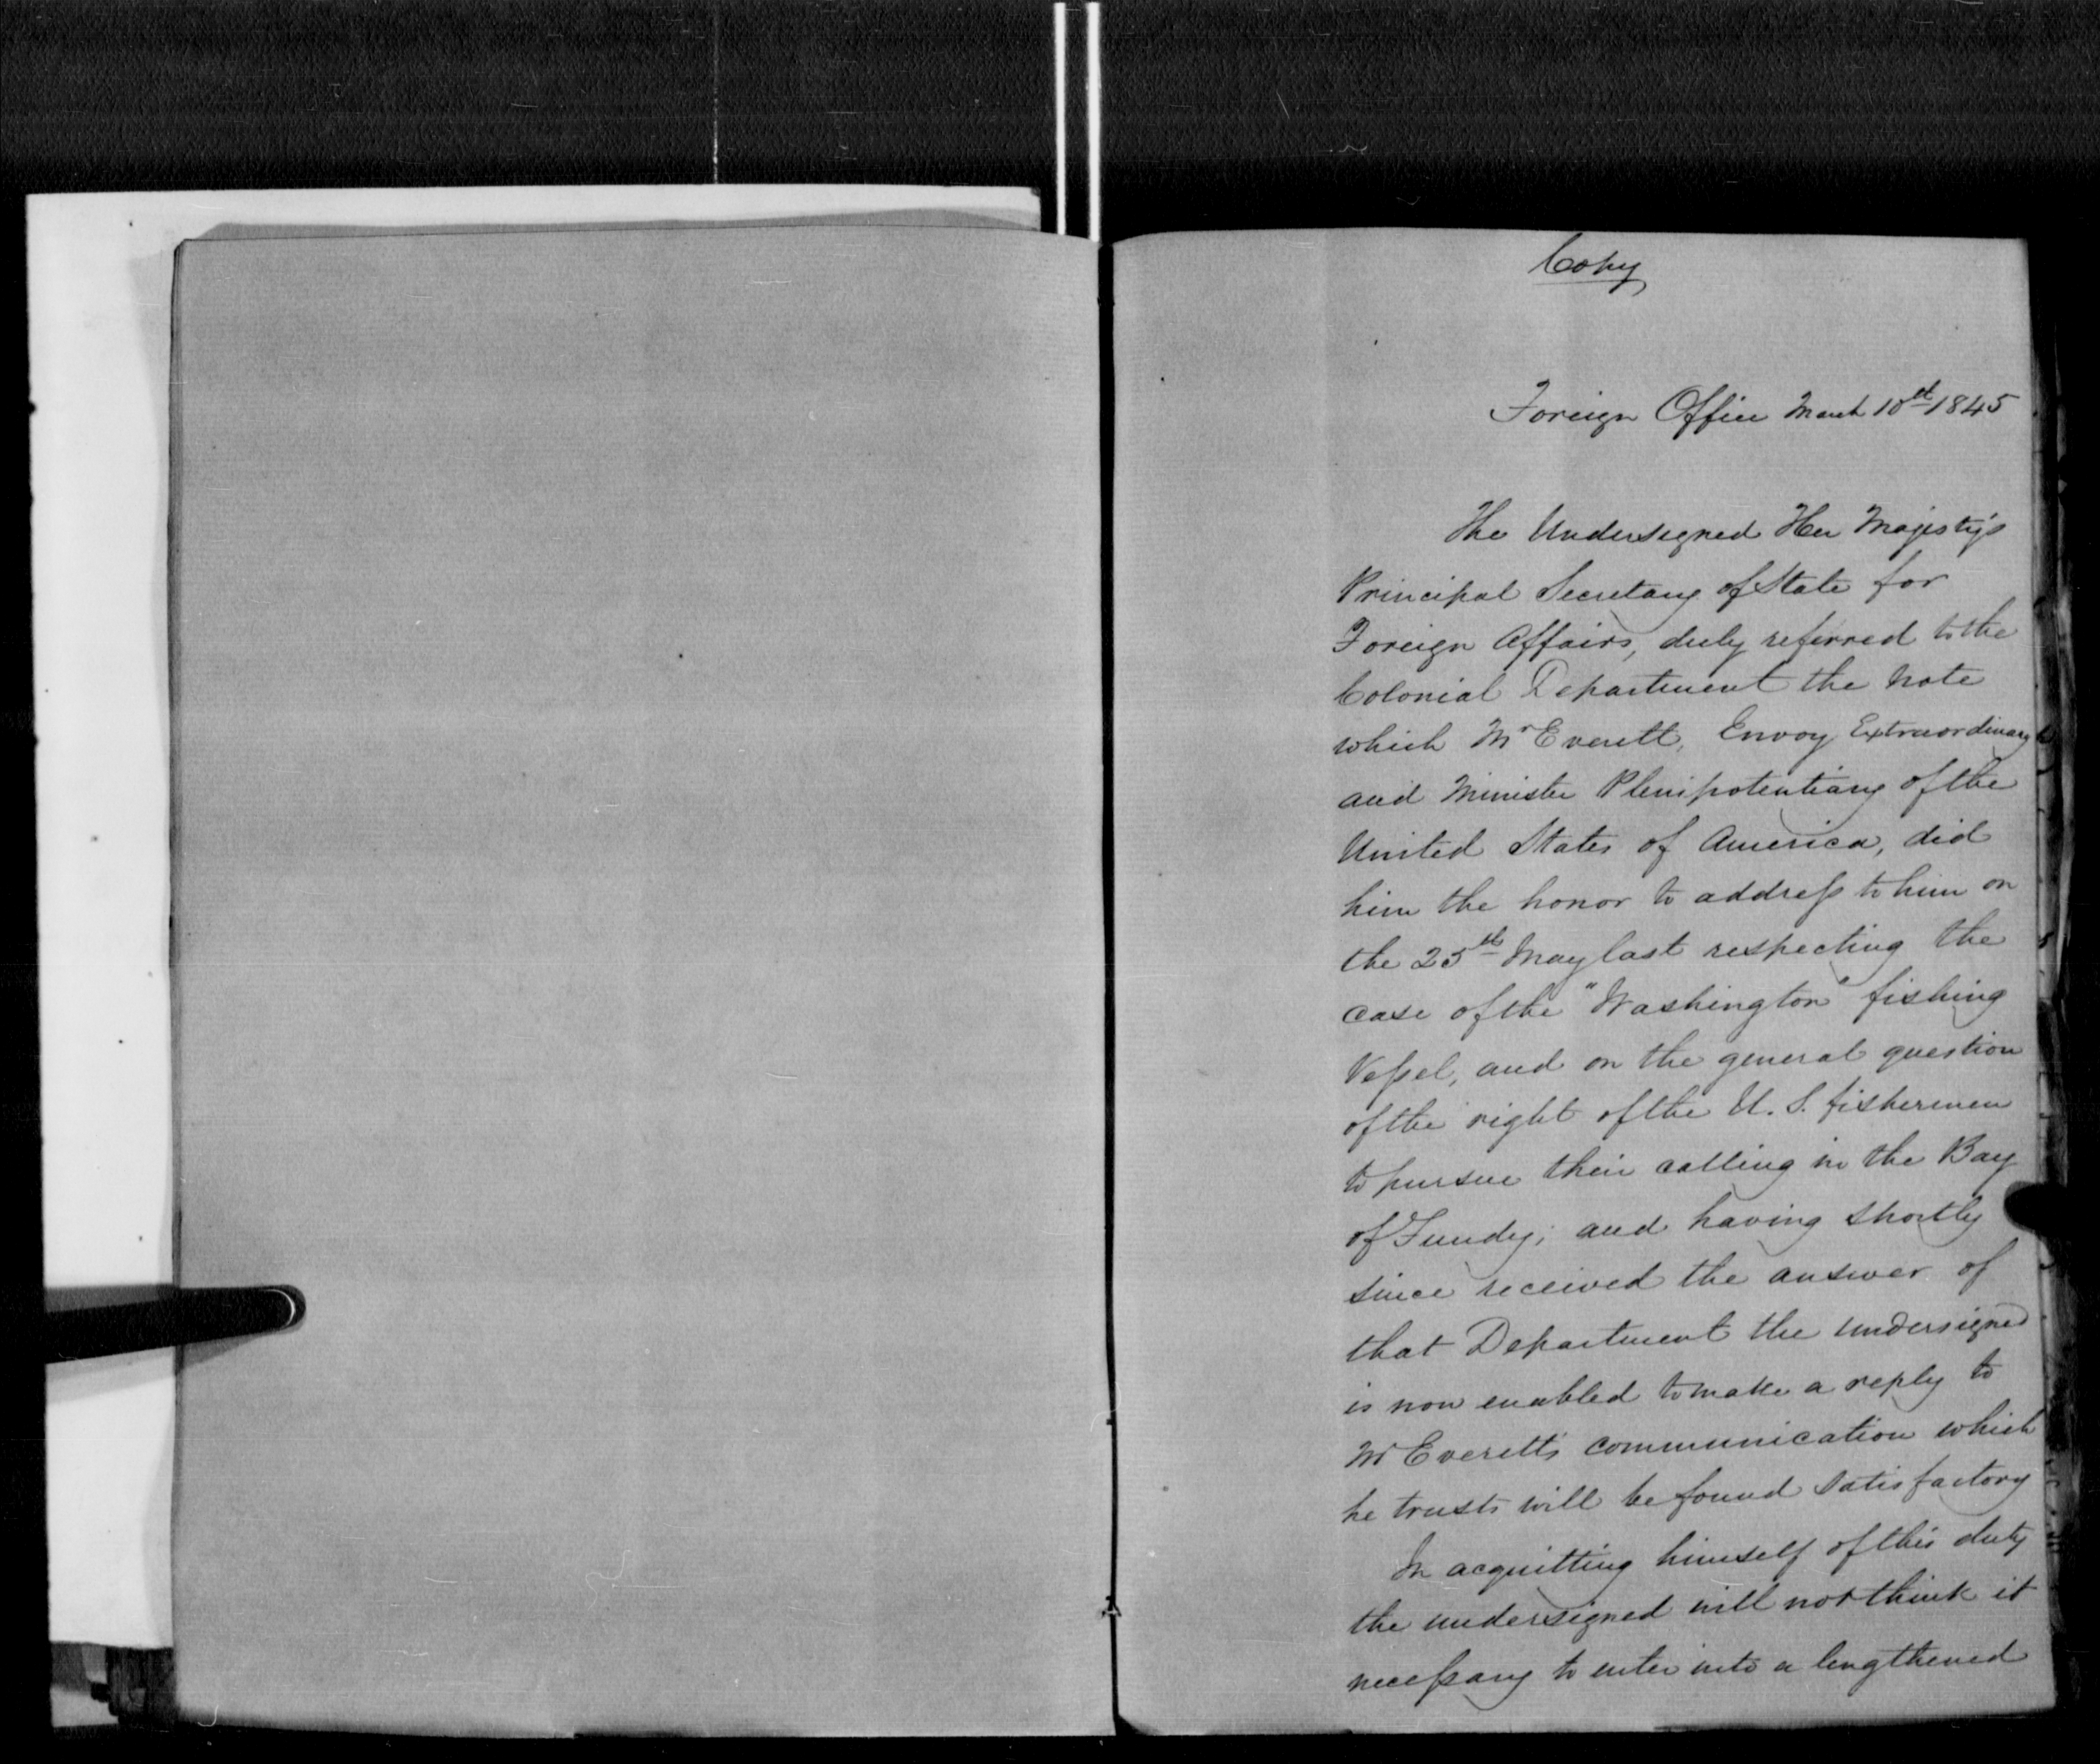 Copy
Foreign Office March 10th 1845
The Undersigned Her Majesty's
Principal Secretary of State for
Foreign Affairs, duly referred to the
Colonial Department the note
which Mr Everett, Envoy Extraordinary
and Minister Plenipotentiary of the
United States of America, did
him the honor to address to him on
the 25th May last respecting the
case of the "Washington" fishing
Vessel, and on the general question
of the right of the U. S. fishermen
to pursue their calling in the Bay
of Fundy; and having shortly
since received the answer of
that Department the undersigned
is now enabled to make a reply to
Mr Everett's communication which
he trusts will be found satisfactory
In acquitting himself of this duty
the undersigned will not think it
necessary to enter into a lengthened